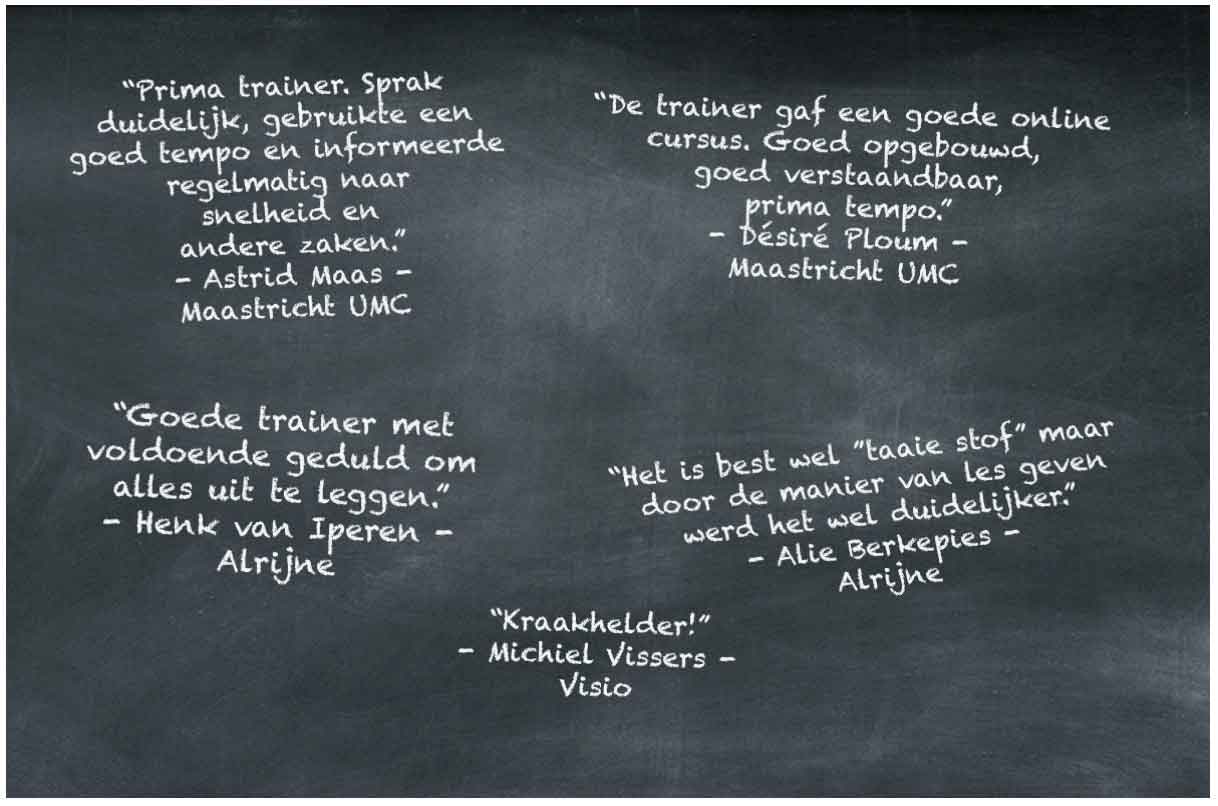 “Prima trainer. Sprak
duidelijk, gebruikte een
goed tempo en informeerde
regelmatig naar
snelheid en
andere zaken.”
- Astrid Maas -
Maastricht UMC
“De trainer gaf een goede online
cursus. Goed opgebouwd,
goed verstaandbaar,
prima tempo.”
- Désiré Ploum -
Maastricht UMC
“Goede trainer met
voldoende geduld om
alles uit te leggen.”
- Henk van Iperen -
Alrijne
“Het is best wel ”taaie stof” maar
door de manier van les geven
werd het wel duidelijker.”
- Alie Berkepies -
Alrijne
“Kraakhelder!”
- Michiel Vissers -
Visio